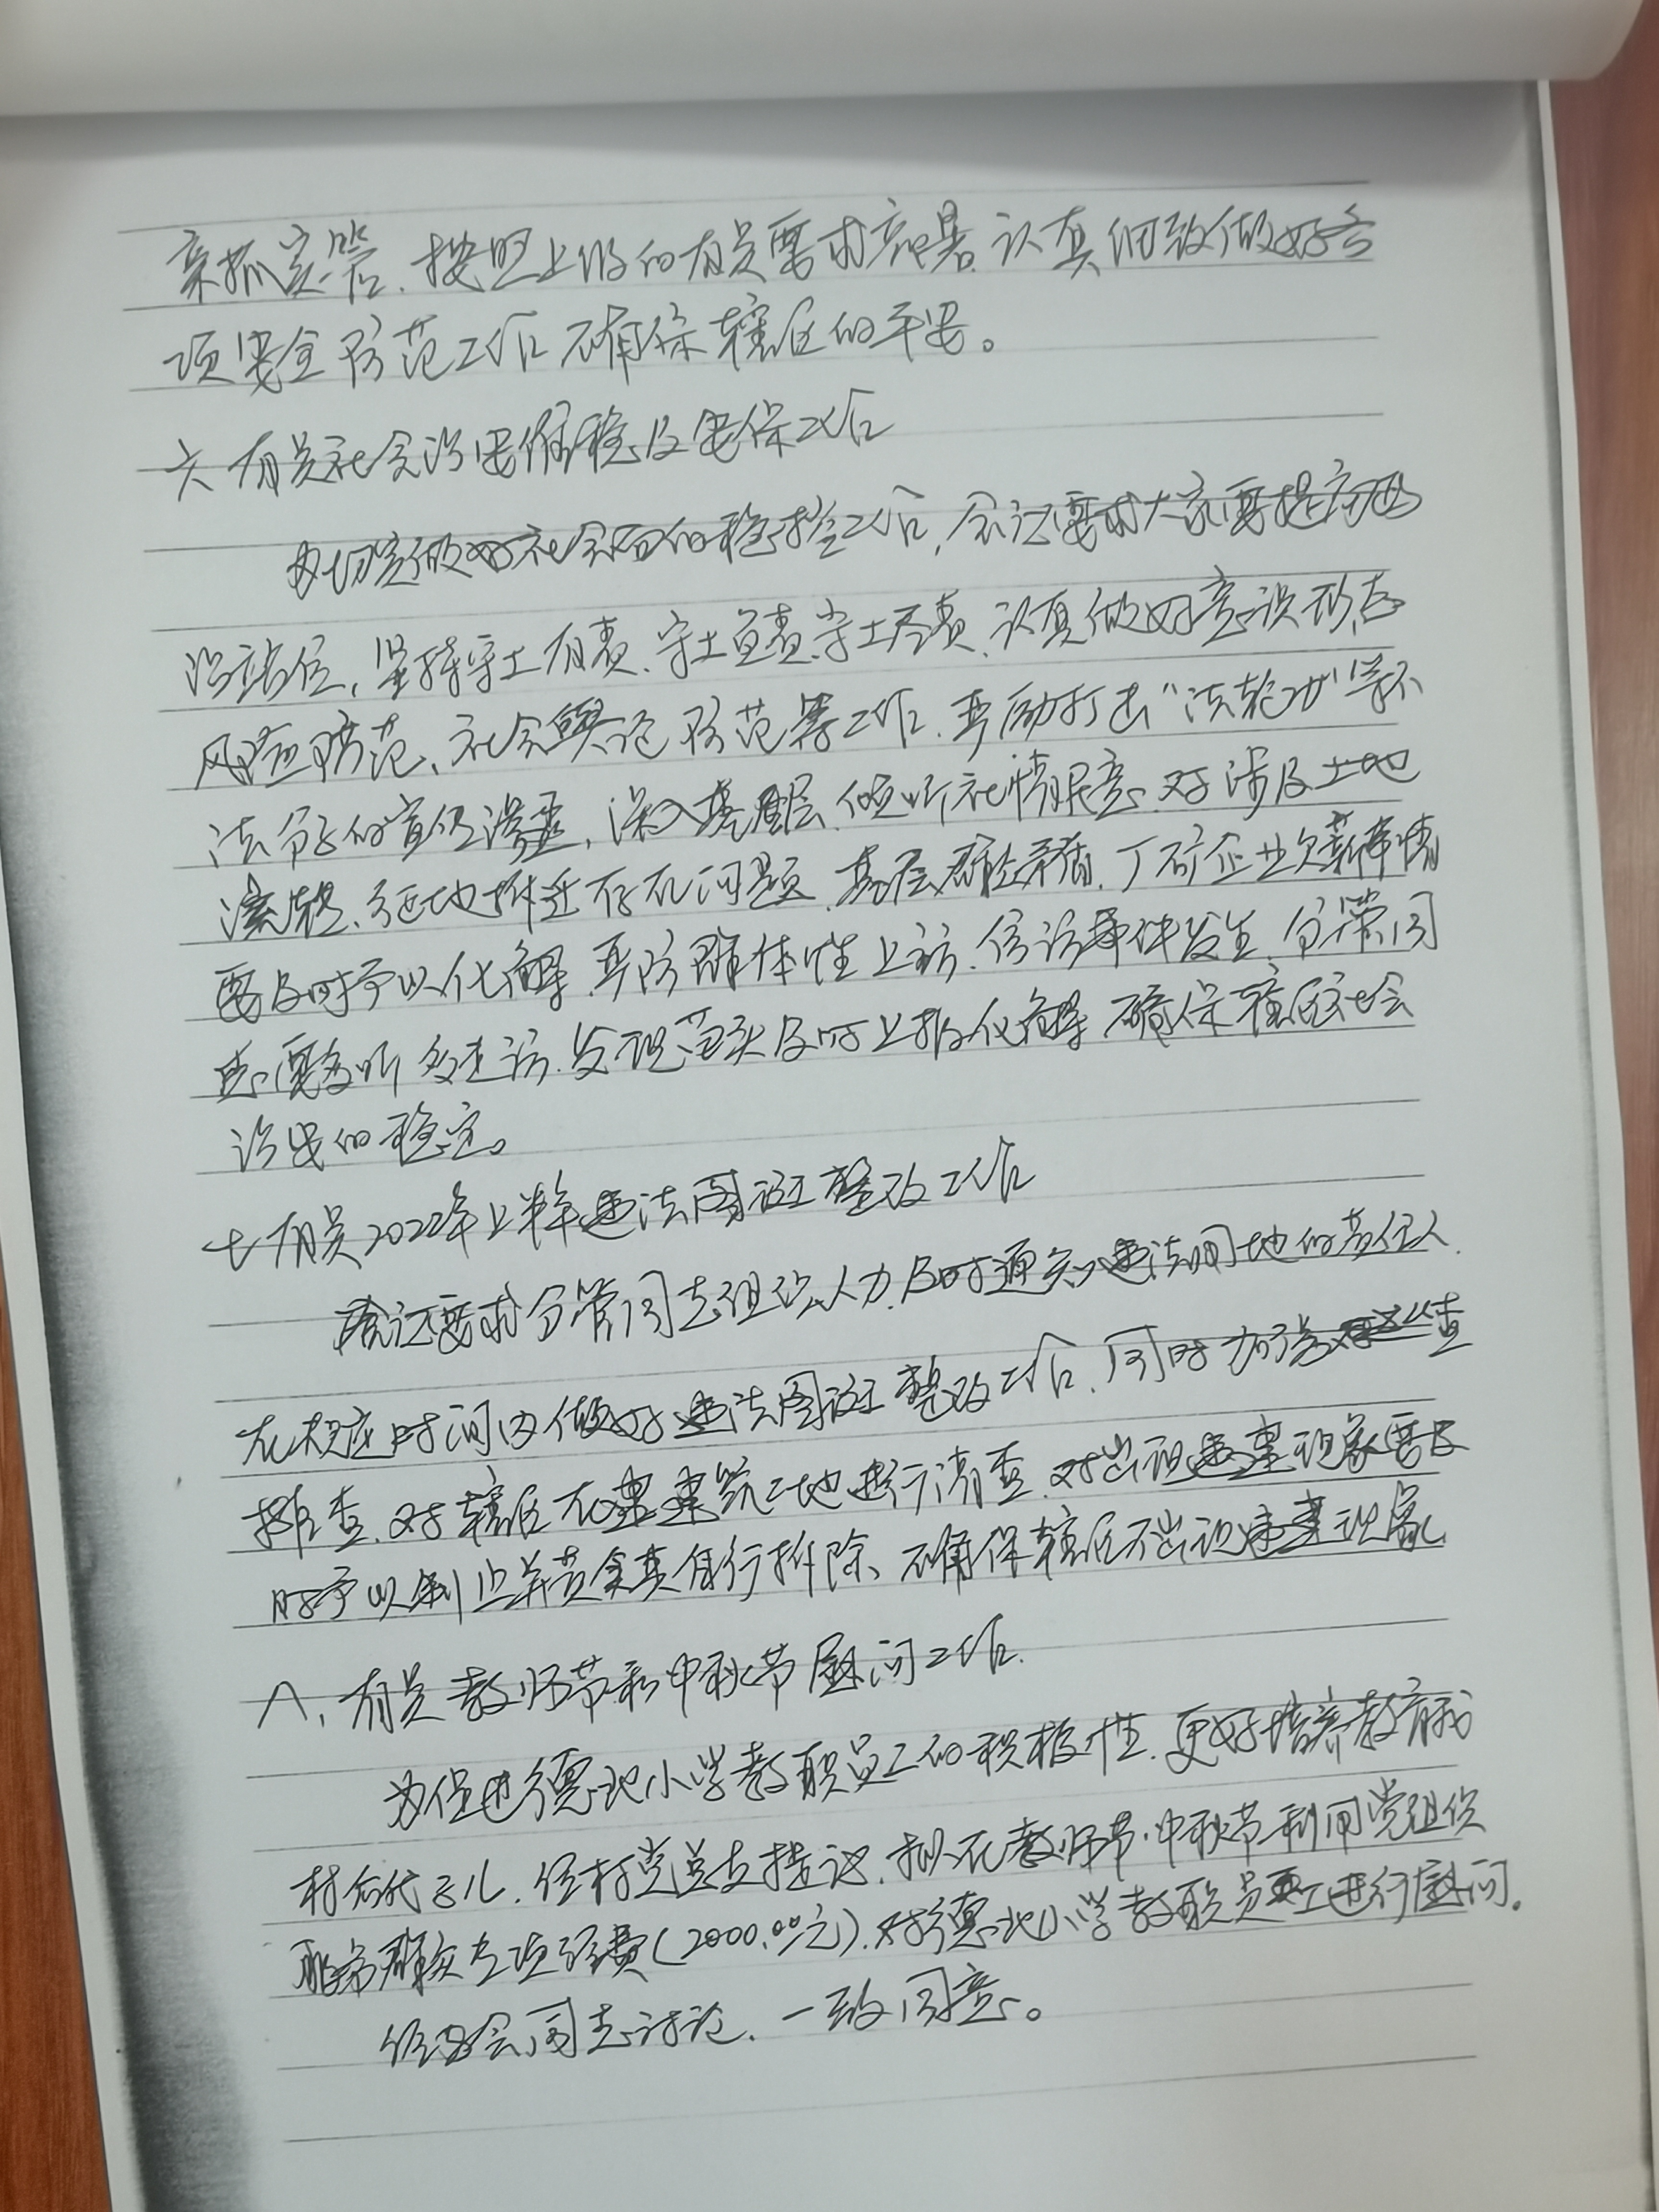 亲抓实管、按照上级的有关要求部署、认真细致做好各
项安全防范工作 确保辖区的平安。
六 有关社会治安维稳及安保工作
为切实做好社会面的稳控工作，会议要求大家要提高政
治站位，坚持守土有责、守土负责、守土尽责、认真做好意识形态
风险防范、社会舆论防范等工作、要严打击“法轮功”等不
法分子的宣传渗透，深入基层、倾听社情民意、对涉及土地
流转、征地拆迁存在问题、基层群众矛盾、厂矿企业欠薪事情
要及时予以化解、严防群体性上访、信访事件发生、分管同
志要多听多走访、发现苗头及时上报化解 确保辖区社会
治安的稳定。
七 有关2022年上半年违法图斑整改工作
会议要求分管同志组织人力、及时通知违法用地的责任人、
在相应时间内做好违法图斑整改工作、同时加强 查
排查、对辖区在建建筑工地进行清查、对出现违建现象要及
时予以制止并责令其自行拆除、确保辖区不出现违建现象
八、有关教师节和中秋节慰问工作、
为促进德地小学教职员工的积极性、更好培养教育我
村后代子儿、经村党总支提议、拟在教师节、中秋节利用党组织
服务群众专项经费(2000.00元)、对德地小学教职员工进行慰问。
经与会同志讨论、一致同意。